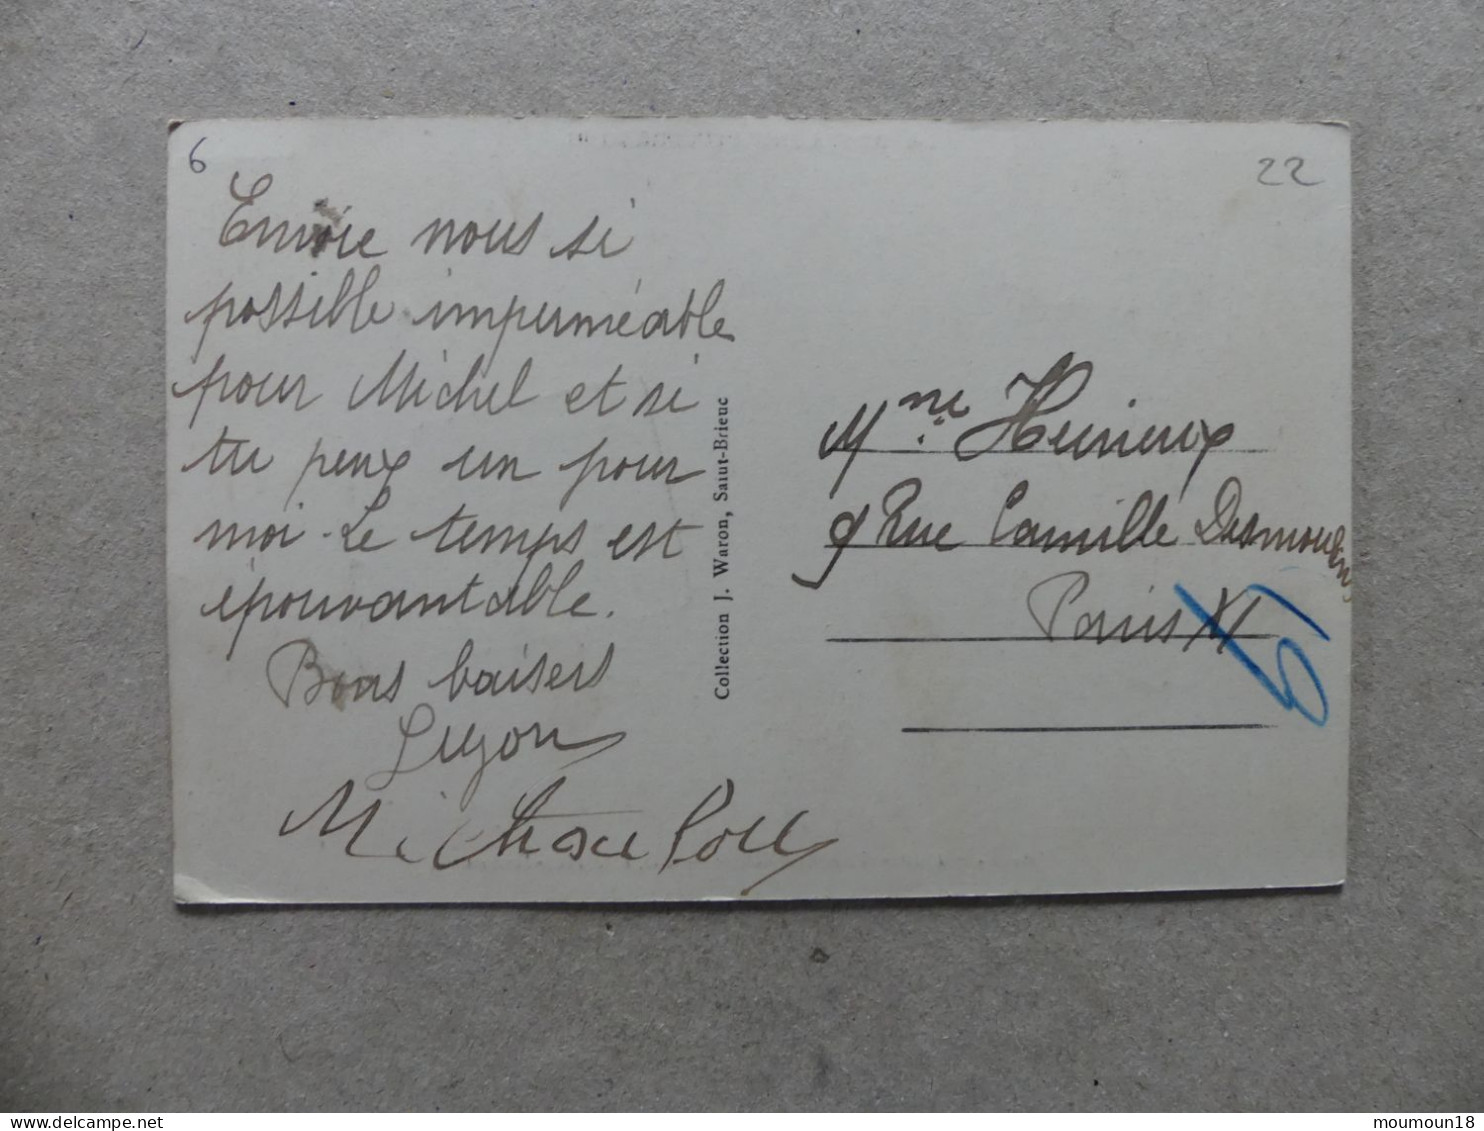 6
22
Envoie nous si
possible imperméable
pour Michel et si
tu peux un pour
moi. Le temps est
épouvantable.
Bons baisers
Collection J. Waron, Saint-Brieuc
Mme
9 Rue Camille Desmoulins
Paris XI
moumoun18